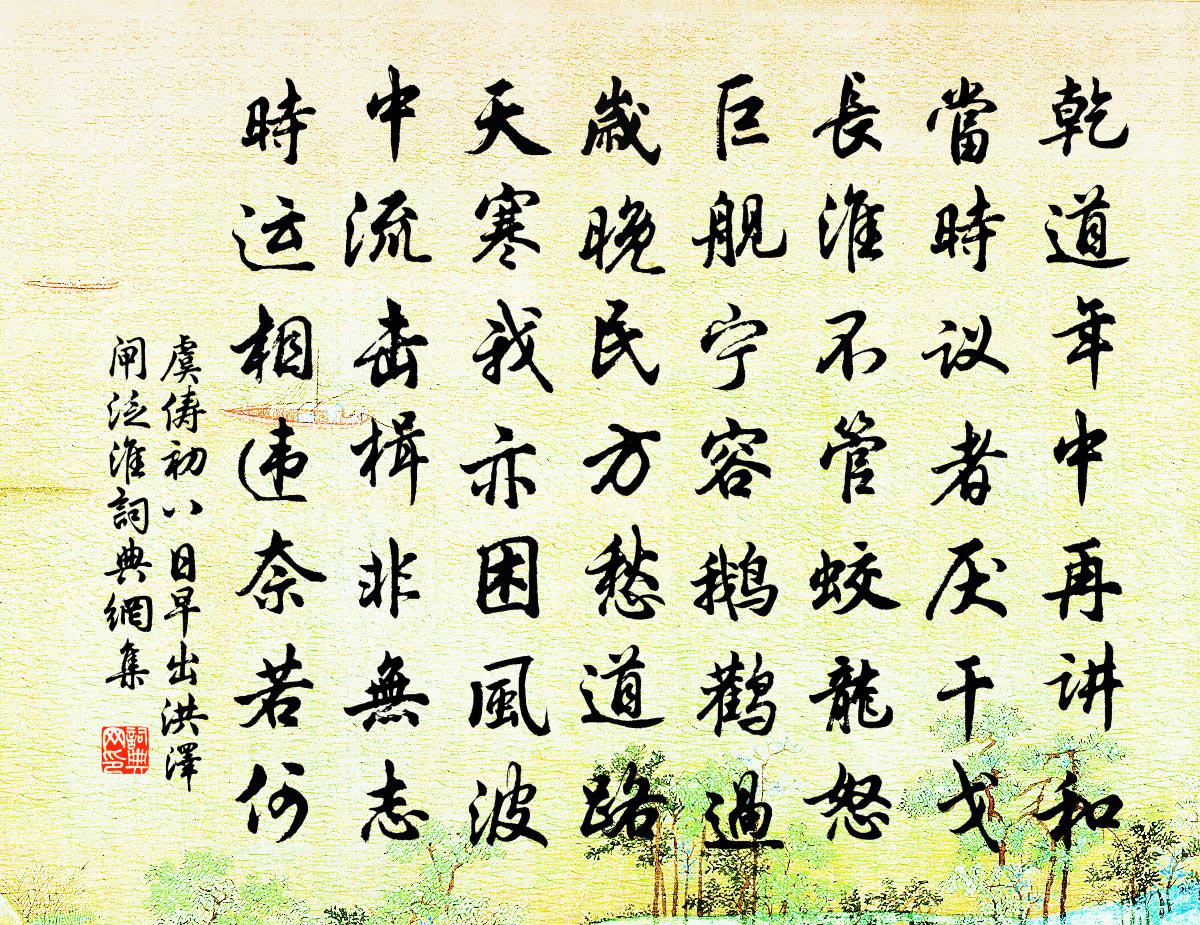 乾道年中再讲和
當時议者厌干戈
長淮不管蛟龍怒
巨舰宁容鹅鹳過
歲晚民方愁道路
天寒我亦困風波
中流击楫非無志
時运相违奈若何
虞俦初八日早出洪澤
闸泛淮詞典網集
詞典
网印